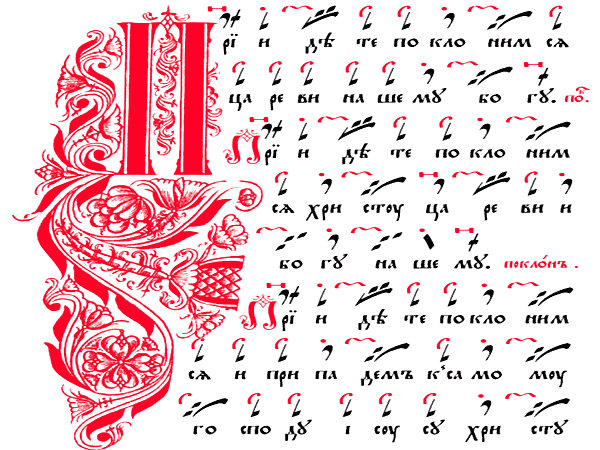 Прїи дѣ те по кло ним ся
ца ре ви на ше му бо гу. по҃.
Прїи дѣ те по кло ним
ся хри стоу ца ре ви и
бо гу на ше му. покло́нъ .
Прїи дѣ те по кло ним
ся и при па демъ к̾ са мо моу
го спо ду і соу су хри сту